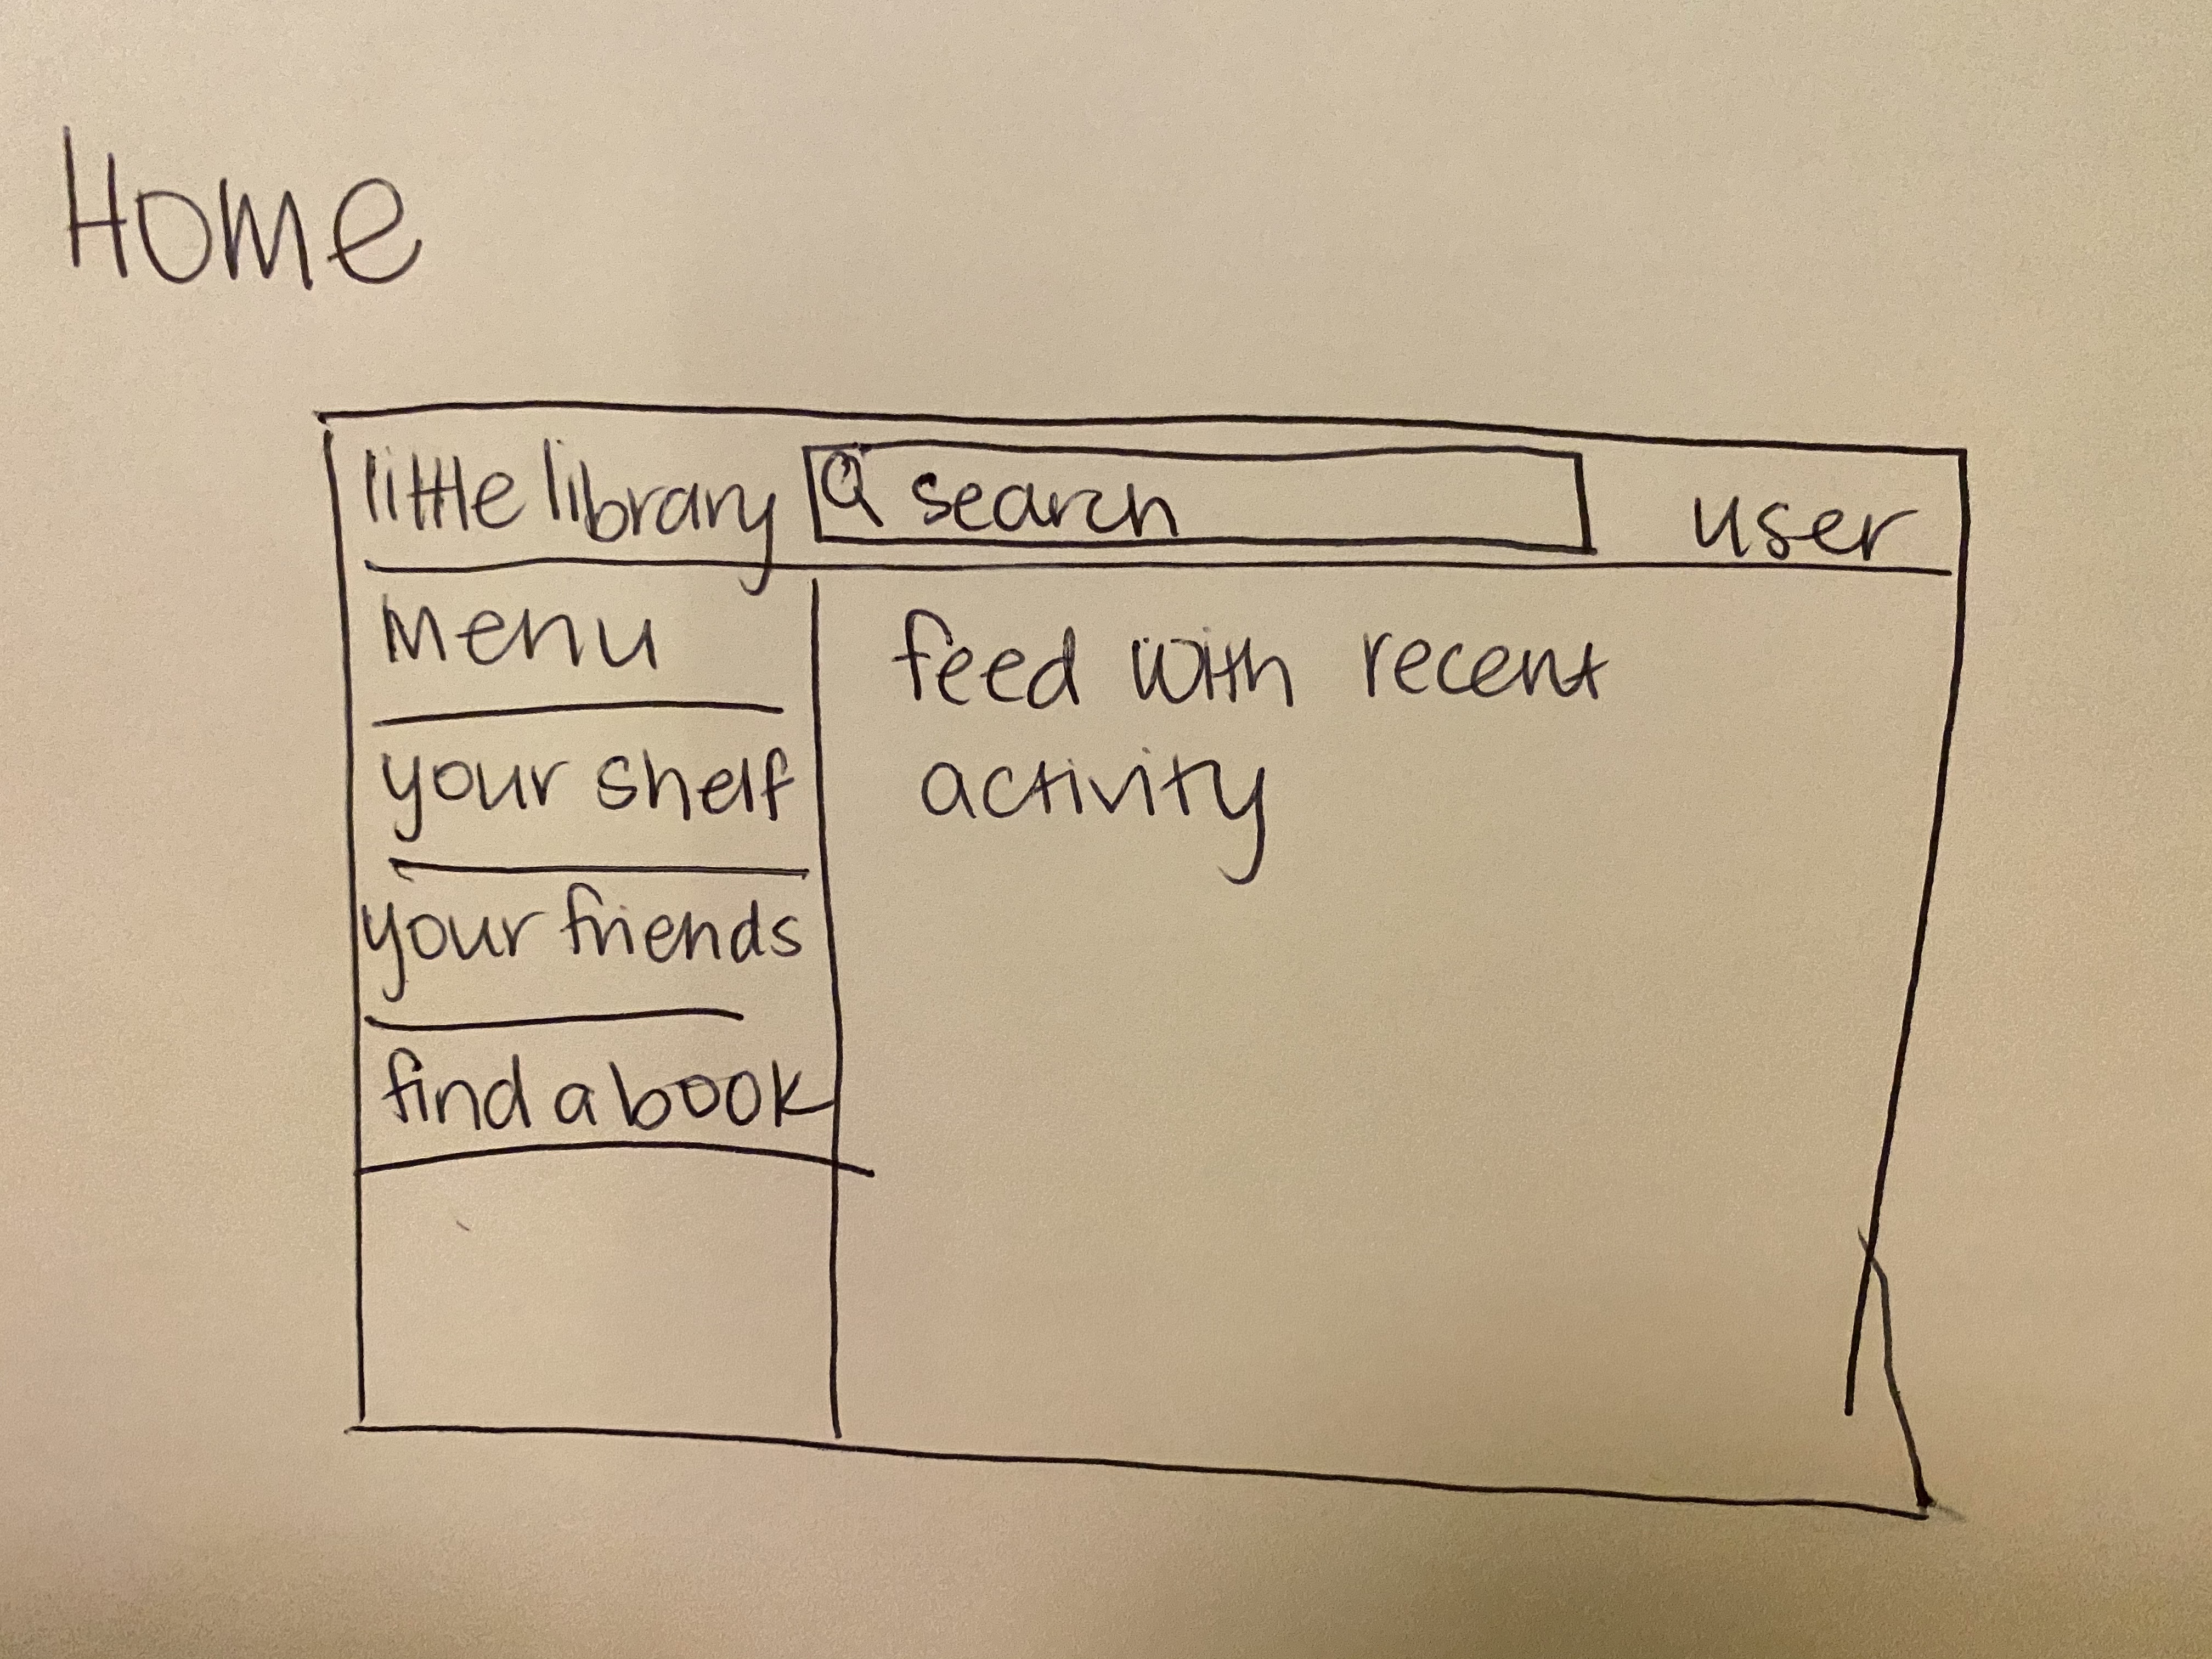 Home
little library
search
user
Menu
your shelf
your friends
find a book
feed with recent
activity